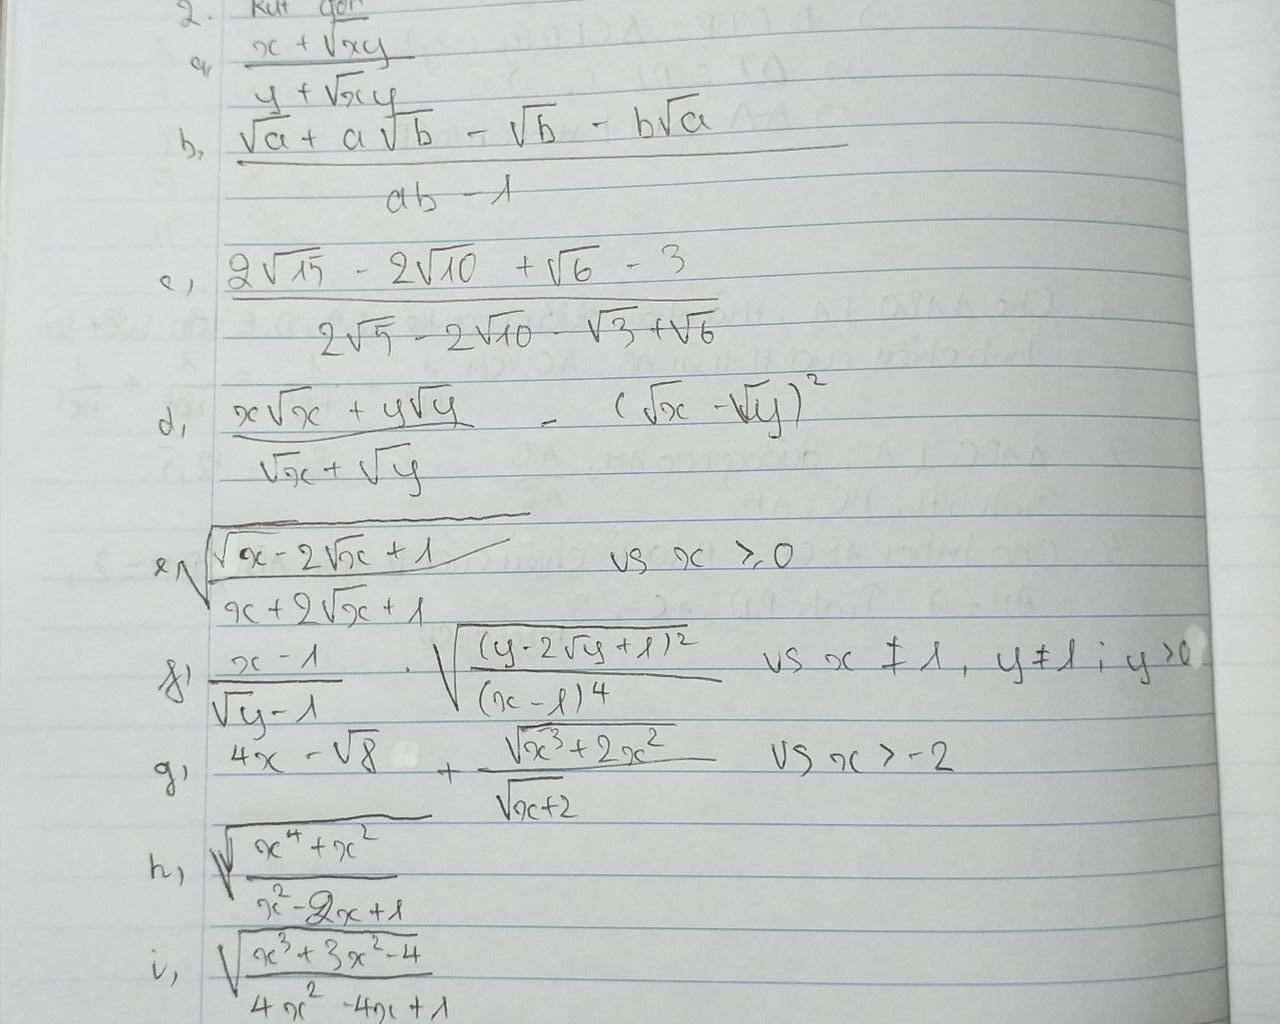 2. Rút gọn
a, (x + √xy) / (y + √xy)
b, (√a + a√b - √b - b√a) / (ab - 1)
c, (2√15 - 2√10 + √6 - 3) / (2√5 - 2√10 - √3 + √6)
d, (x√x + y√y) / (√x + √y) - (√x - √y)²
e, √((x - 2√x + 1) / (x + 2√x + 1)) vs x ≥ 0
f, (x - 1) / (√y - 1) . √((y - 2√y + 1)² / (x - 1)⁴) vs x ≠ 1, y ≠ 1 ; y > 0
g, 4x - √8 + √(x³ + 2x²) / √(x+2) vs x > -2
h, √((x⁴ + x²) / (x² - 2x + 1))
i, √((x³ + 3x² - 4) / (4x² - 4x + 1))